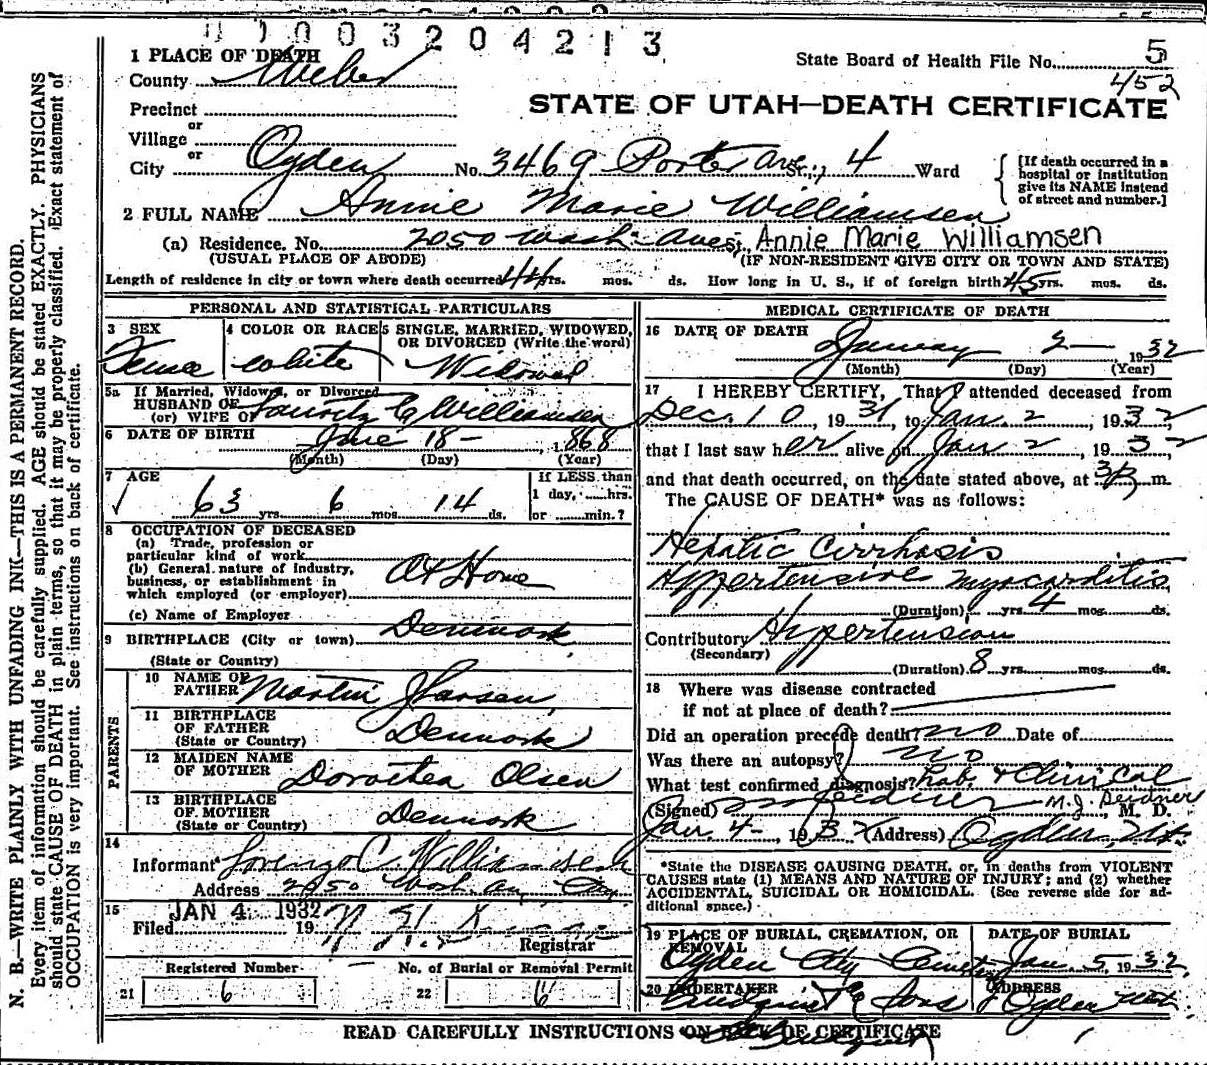 0 1 0 0 3 2 0 4 2 1 3
State Board of Health File No. 5
452
STATE OF UTAH—DEATH CERTIFICATE
1 PLACE OF DEATH
County Weber
Precinct
or
Village
or
City Ogden No. 3469 Porter Ave. St.; 4 Ward
[If death occurred in a
hospital or institution
give its NAME instead
of street and number.]
2 FULL NAME Annie Marie Williamsen
(a) Residence. No. 2050 Wash. Ave. Annie Marie Williamsen
(USUAL PLACE OF ABODE) (IF NON-RESIDENT GIVE CITY OR TOWN AND STATE)
Length of residence in city or town where death occurred 44 yrs. mos. ds. How long in U. S., if of foreign birth 45 yrs. mos. ds.
PERSONAL AND STATISTICAL PARTICULARS
3 SEX
4 COLOR OR RACE
5 SINGLE, MARRIED, WIDOWED,
OR DIVORCED (Write the word)
white Widowed
5a If Married, Widowed, or Divorced
HUSBAND OF
(or) WIFE OF Williamsen
6 DATE OF BIRTH June 18 - 1868
(Month) (Day) (Year)
7 AGE
If LESS than
1 day, hrs.
or min.?
63 yrs. 6 mos. 14 ds.
8 OCCUPATION OF DECEASED
(a) Trade, profession or
particular kind of work
(b) General nature of industry,
business, or establishment in
which employed (or employer) At Home
(c) Name of Employer
9 BIRTHPLACE (City or town) Denmark
(State or Country)
PARENTS
10 NAME OF
FATHER Martin Larsen
11 BIRTHPLACE
OF FATHER
(State or Country) Denmark
12 MAIDEN NAME
OF MOTHER Dorothea Olsen
13 BIRTHPLACE
OF MOTHER
(State or Country) Denmark
14
Informant Lorenzo C. Williamsen
Address 2050 Wash. Av. City
15 JAN 4 1932
Filed 19 Registrar
Registered Number No. of Burial or Removal Permit
21 6 22 6
MEDICAL CERTIFICATE OF DEATH
16 DATE OF DEATH
January 2 - 1932
(Month) (Day) (Year)
17 I HEREBY CERTIFY, That I attended deceased from
Dec. 10, 1931, to Jan. 2, 1932,
that I last saw her alive on Jan 2, 1932,
and that death occurred, on the date stated above, at 3 P m.
The CAUSE OF DEATH* was as follows:
Hepatic Cirrhosis
Hypertensive Myocarditis
(Duration) yrs. 4 mos. ds.
Contributory Hypertension
(Secondary)
(Duration) 8 yrs. mos. ds.
18 Where was disease contracted
if not at place of death?
Did an operation precede death? no Date of
Was there an autopsy? no
What test confirmed diagnosis? Lab. & Clinical
(Signed) M.J. Seidner, M. D.
Jan. 4 - 1932 (Address) Ogden, Ut.
*State the DISEASE CAUSING DEATH, or, in deaths from VIOLENT
CAUSES state (1) MEANS AND NATURE OF INJURY; and (2) whether
ACCIDENTAL, SUICIDAL OR HOMICIDAL. (See reverse side for ad-
ditional space.)
19 PLACE OF BURIAL, CREMATION, OR
REMOVAL
Ogden City Cemetery
DATE OF BURIAL
Jan. 5, 1932
20 UNDERTAKER
& Sons
ADDRESS
Ogden Utah
READ CAREFULLY INSTRUCTIONS ON BACK OF CERTIFICATE
N. B.—WRITE PLAINLY WITH UNFADING INK—THIS IS A PERMANENT RECORD.
Every item of information should be carefully supplied. AGE should be stated EXACTLY. PHYSICIANS
should state CAUSE OF DEATH in plain terms, so that it may be properly classified. Exact statement of
OCCUPATION is very important. See instructions on back of certificate.